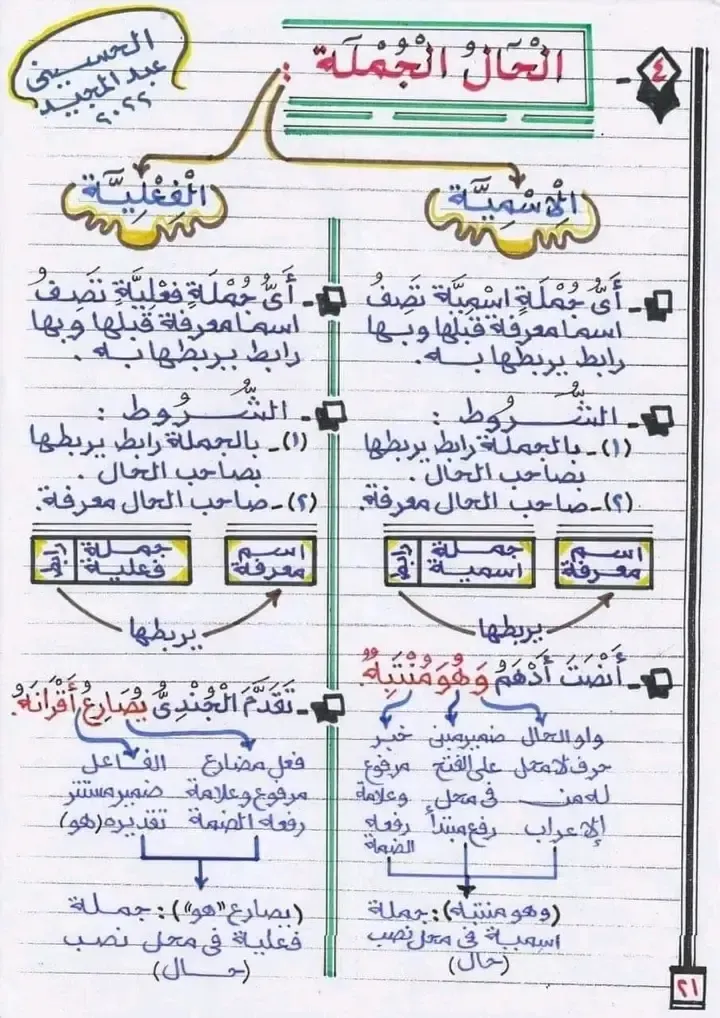 ٤ - الْحَالُ الْجُمْلَة :
الحسيني
عبد المجيد
٢٠٢٢
الْإِسْمِيَّة
أَيُّ جُمْلَةٍ اسْمِيَّة تَصِفُ
اسما معرفة قبلها وبها
رابط يربطها به.
الشُّــرُوط :
(١)- بالجملة رابط يربطها
بصاحب الحال .
(٢)- صاحب الحال معرفة.
اسم معرفة
جملة اسمية
رابط
يربطها
أَنْصَتَ أَدْهَمُ وَهُوَ مُنْتَبِهٌ.
واو الحال
حرف لا محل
له من
الإعراب
ضمير مبنى
على الفتح
فى محل
رفع مبتدأ
خبر
مرفوع
وعلامة
رفعه
الضمة
(وهو منتبه): جملة
اسمية فى محل نصب
(حال)
الْفِعْلِيَّة
أَيُّ جُمْلَةٍ فِعْلِيَّةٍ تَصِفُ
اسما معرفة قبلها وبها
رابط يربطها به .
الشُّــرُوط :
(١)- بالجملة رابط يربطها
بصاحب الحال .
(٢)- صاحب الحال معرفة.
اسم معرفة
جملة فعلية
رابط
يربطها
تَقَدَّمَ الْجُنْدِىُّ يُصَارِعُ أَقْرَانَهُ.
فعل مضارع
مرفوع وعلامة
رفعه الضمة
الفاعل
ضمير مستتر
تقديره (هو)
(يصارع "هو"): جملة
فعلية فى محل نصب
(حال)
٢١